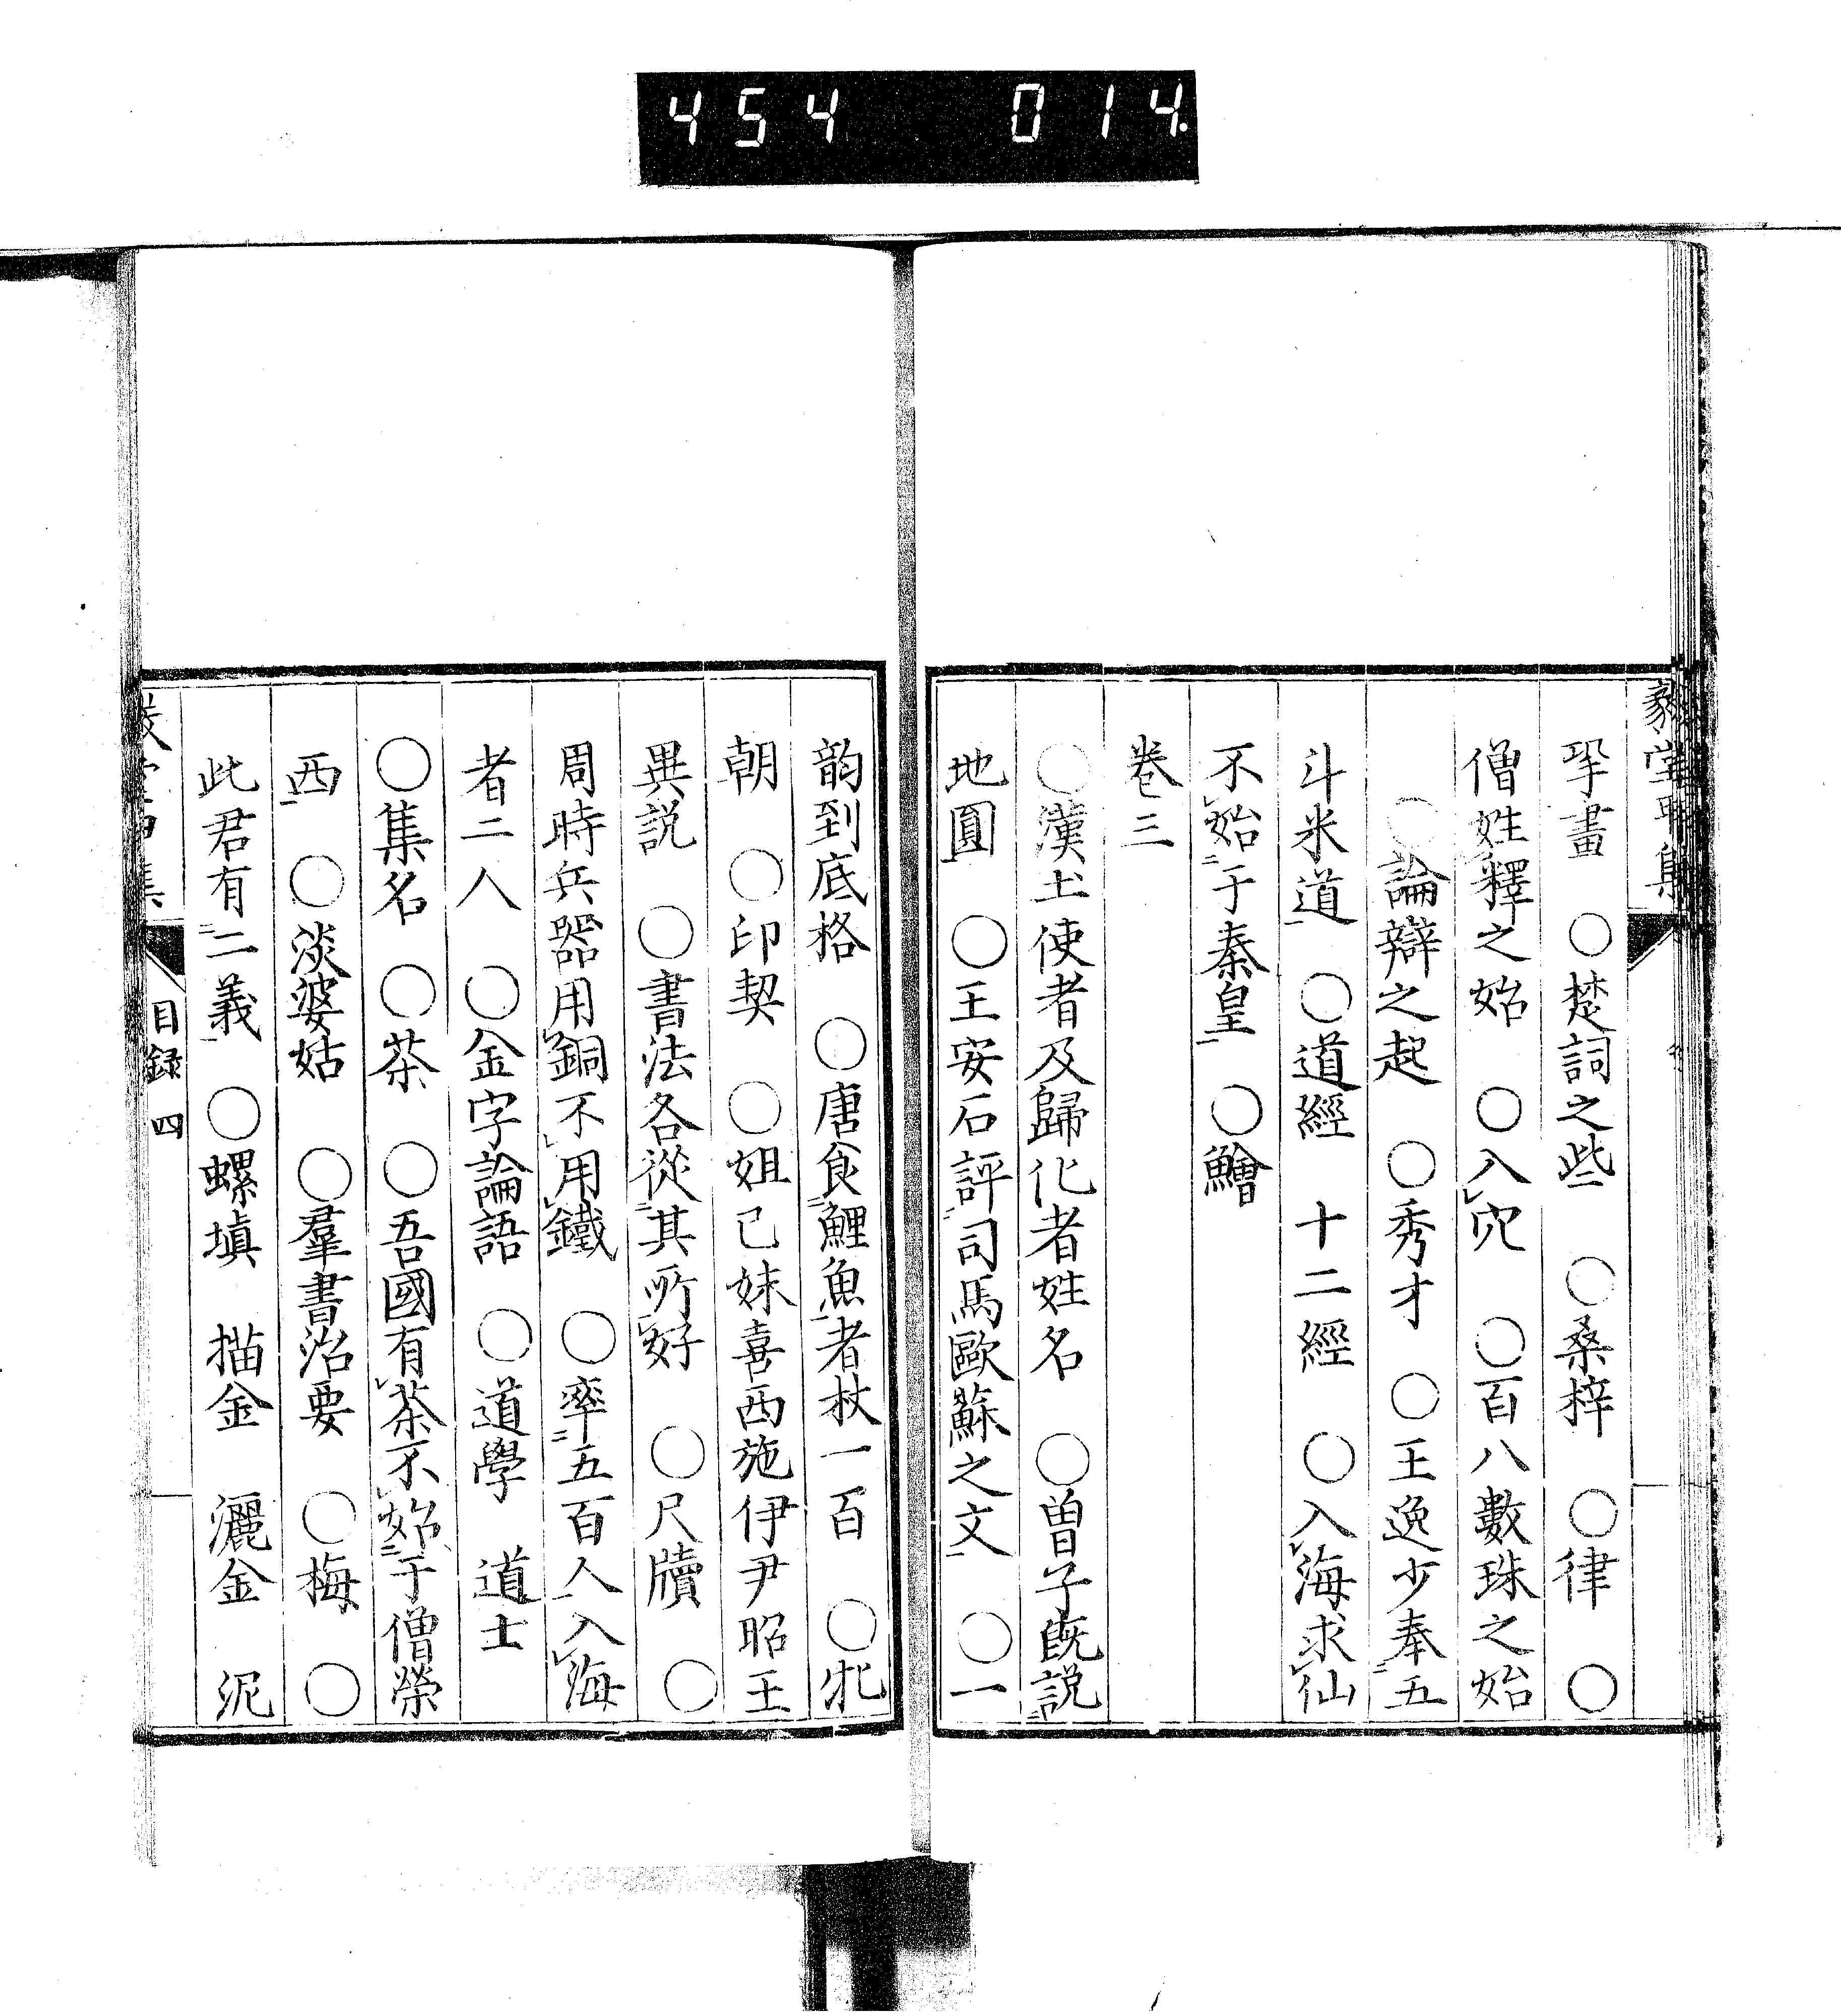 454 014
堂
硩畫 ○楚詞之些 ○桑梓 ○律 ○
僧姓釋之始 ○入穴 ○百八數珠之始
○論辯之起 ○秀才 ○王逸少奉五
斗米道 ○道經 十二經 ○入海求仙
不始于秦皇 ○鱠
卷三
○漢土使者及歸化者姓名 ○曽子既説
地圓 ○王安石評司馬歐蘇之文 ○一
韵到底格 ○唐食鯉魚者杖一百 ○牝
朝 ○印契 ○妲己妹喜西施伊尹昭王
異説 ○書法各從其所好 ○尺牘 ○
周時兵器用銅不用鐵 ○率五百人入海
者二人 ○金字論語 ○道學 道士
○集名 ○茶 ○吾國有茶不始于僧榮
西 ○淡婆姑 ○羣書治要 ○梅 ○
此君有二義 ○螺塡 描金 灑金 泥
目録 四